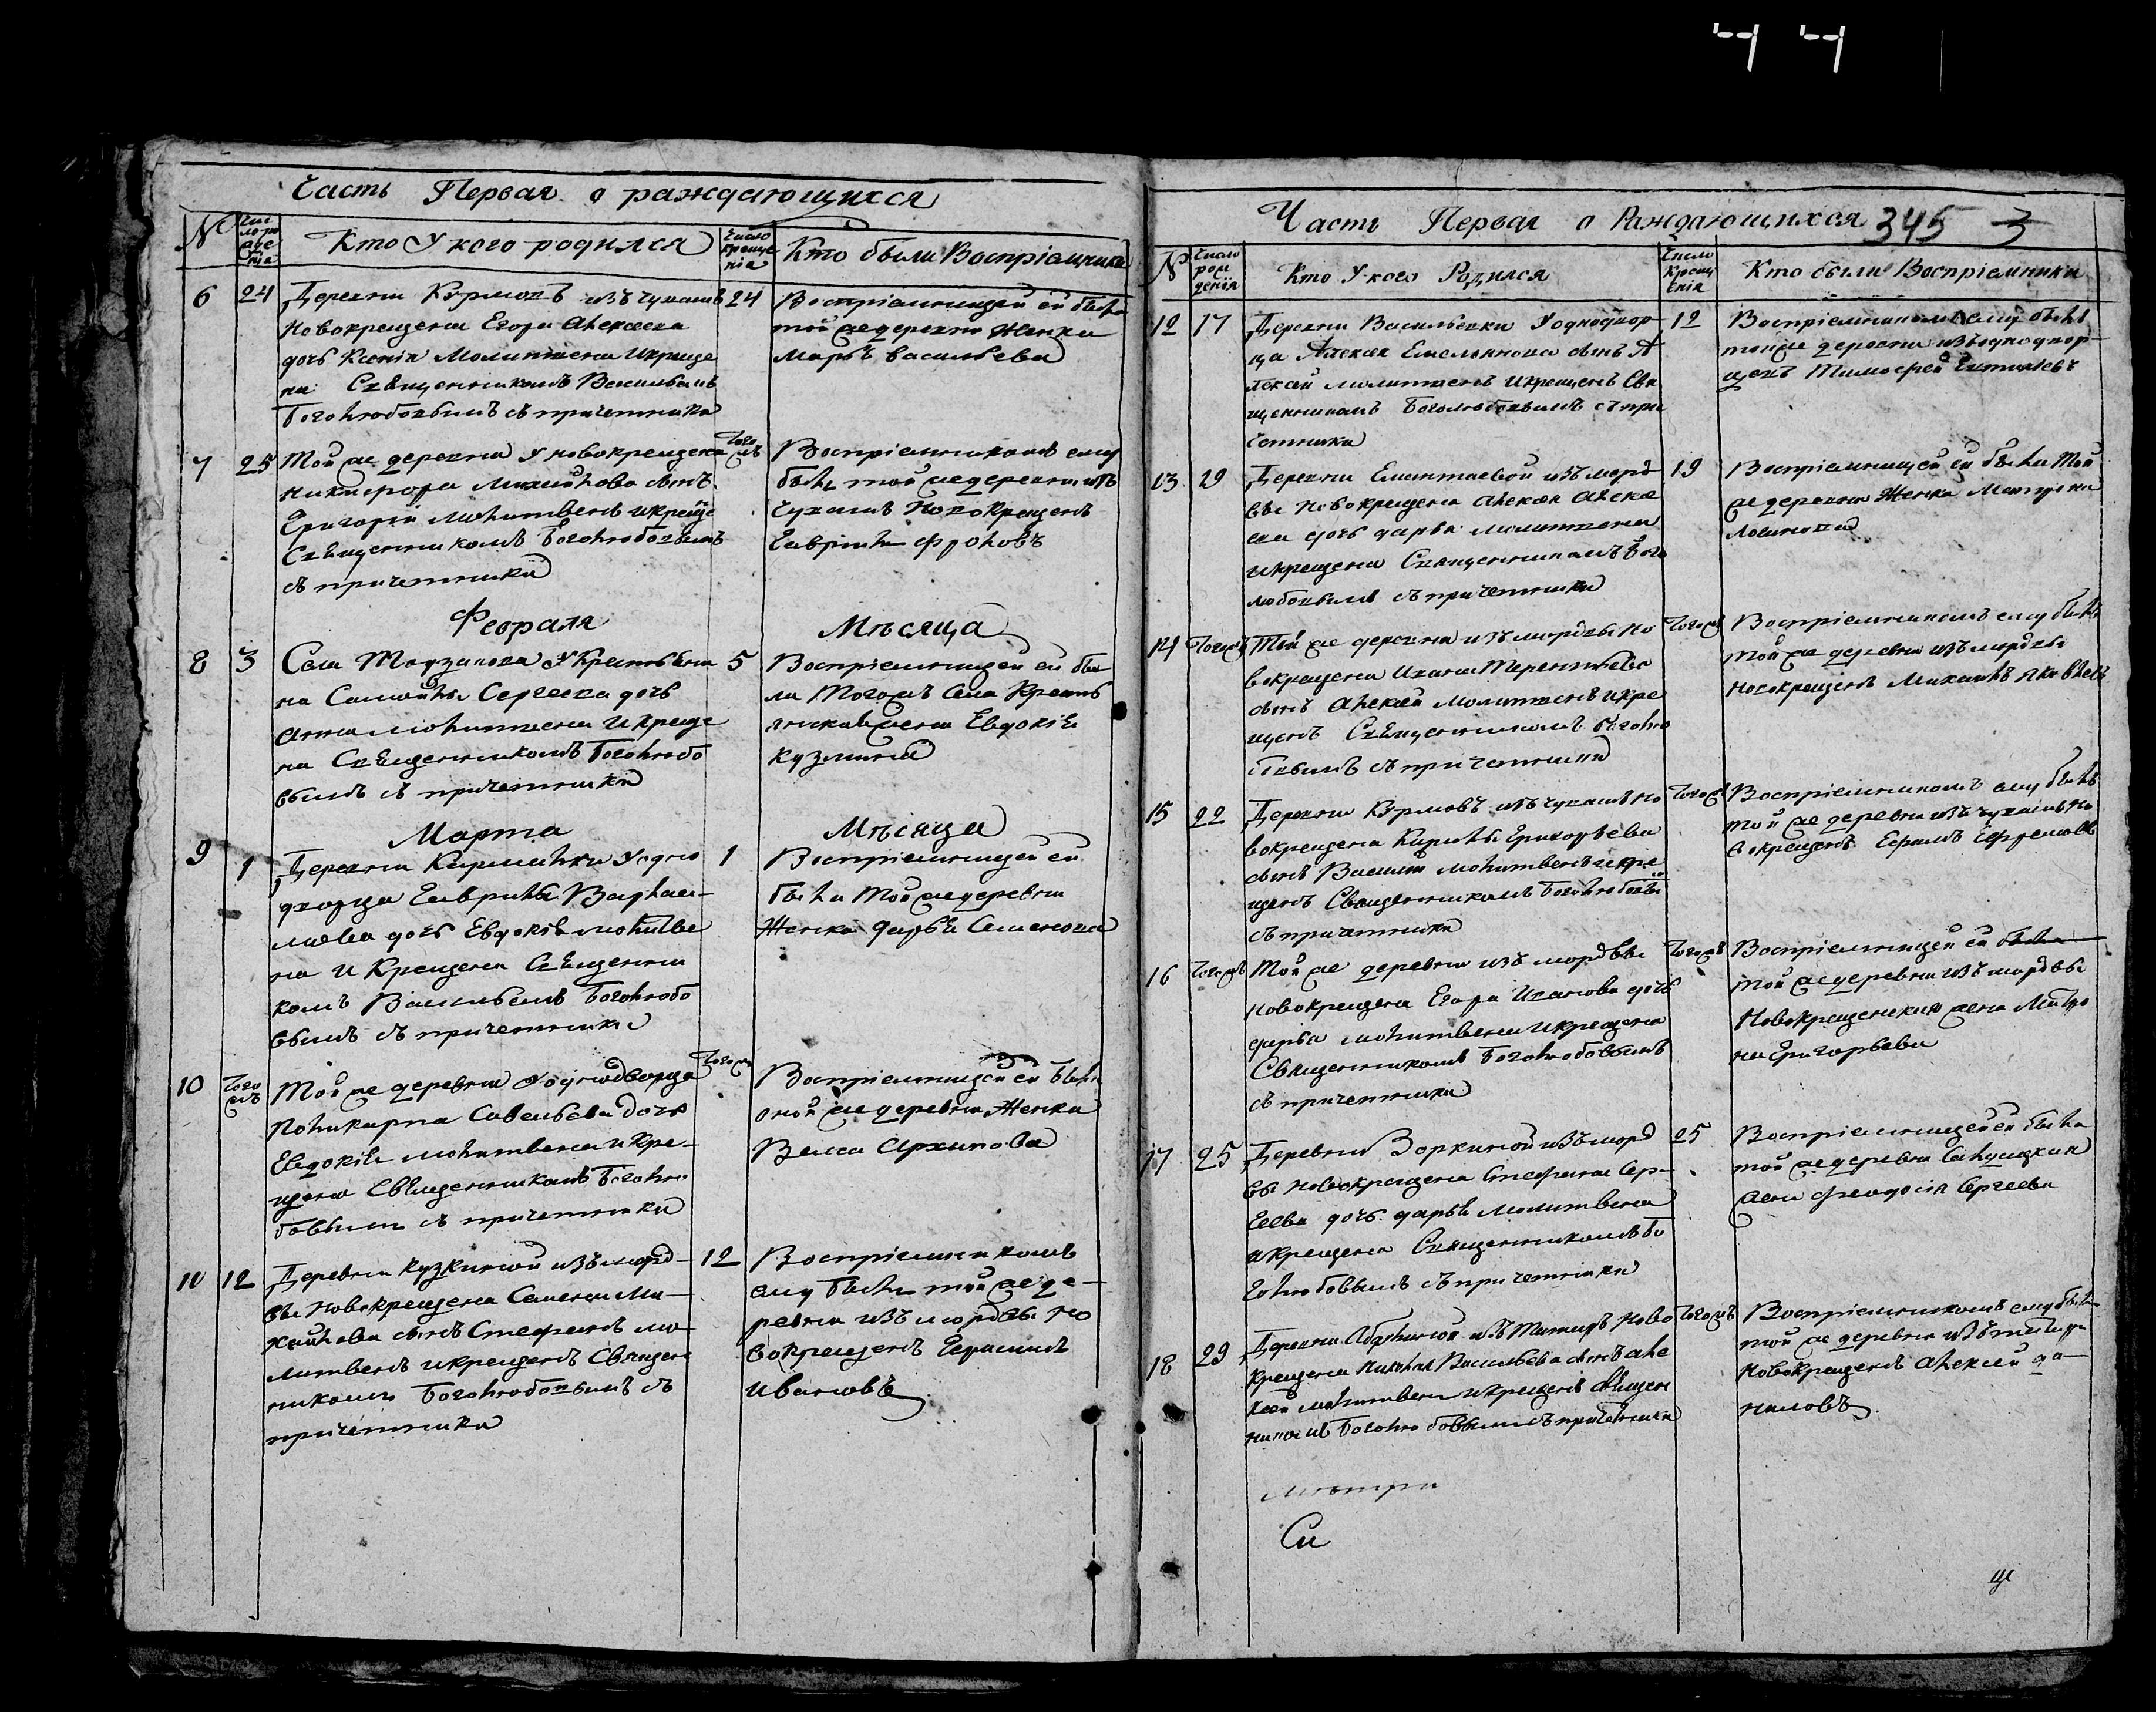 Часть Первая о раждающихся
№
Число рождения
Кто У кого родился
Число крещения
Кто были Восприемники
6 24 Деревни Курмовъ изъ чувашъ 24
новокрещена Егора Алексеева
дочь Ксенiя Молитвена и креще
на Священникомъ Васильемъ
Боголюбовымъ съ причетники
Восприемницей ей была
той же деревни Женка
Марья васильева
7 25 Той же деревни у новокрещена Того жъ
никифора Михайлова сынъ
Григорiй молитвенъ и креще
Священникомъ Боголюбовымъ
съ причетники
Восприемникомъ ему
былъ той же деревни изъ
Чувашъ Новокрещенъ
Гаврила Фроловъ
Февраля Месяца
8 3 Села У Крестьяни 5
на Самойлы Сергеева дочь
Анна молитвена и креще
на Священникомъ Боголюбо
вымъ съ причетники
Восприемницей ей бы
ла Того жъ Села Кресть
жена Евдокiя
кузмина
Марта Месяца
9 1 Деревни Кирмалки У одно 1
дворца Гаврилы Варфаи–
дочь Евдокiя молитве
на и Крещена Священни
комъ Васильемъ Боголюбо
вымъ съ причетники
Восприемницей ей
была Той же деревни
Женка дарья Семенова
10 Того жъ Той же деревни У однодворца Того жъ
Поликарпа Савельева дочь
Евдокiя молитвена и кре–
щена Священникомъ Боголю
бовымъ съ причетники
Восприемницей ей была
оной же деревни Женка
Васса Архипова
10 12 Деревни кузкиной изъ морд– 12
вы новокрещена Семена Ми–
хайлова сынъ Стефанъ мо
литвенъ и крещенъ Священ
никомъ Боголюбовымъ съ
причетники
Восприемникомъ
ему былъ той же де–
ревни изъ мордвы но
вокрещенъ Герасимъ
Ивановъ
Часть Первая о Раждающихся 345 3
№
Число рождения
Кто У кого Родился
Число Крещения
Кто были Восприемники
12 17 Деревни Васильевки У однодвор– 12
ца Алексея Емельянова сынъ А
лексей молитвенъ и крещенъ Свя
щенникомъ Боголюбовымъ съ при
четники
Восприемникомъ ему былъ
той же деревни изъ однодвор–
цевъ Тимофей
13 29 Деревни изъ морд 19
вы Новокрещена
дочь дарья молитвена
и крещена Священникомъ Бого
любовымъ съ причетники
Восприемницей ей была Той
же деревни Женка Матрена
14 Того жъ Той же деревни изъ мордвы но Того жъ
вокрещена Ивана Терентьева
сынъ Алексей Молитвенъ и кре
щенъ Священникомъ Боголю
бовымъ съ причетники
Восприемникомъ ему былъ
той же деревни изъ мордвы
новокрещенъ Михаилъ Яковлевъ
15 22 Деревни Курмовъ изъ чувашъ но Того жъ
вокрещена Кирилы Григорьева
сынъ Василий молитвенъ и кре
щенъ Священникомъ Боголюбовы
съ причетники
Восприемникомъ ему былъ
той же деревни изъ чувашъ но
вокрещенъ Ефремовъ
16 Того жъ Той же деревни изъ мордвы Того жъ
новокрещена Егора Иванова дочь
дарья молитвена и крещена
Священникомъ Боголюбовымъ
съ причетники
Восприемницей ей была
той же деревни изъ мордвы
Новокрещенскихъ жена Матро
на Григорьева
17 25 Деревни Зоркиной изъ морд 25
вы новокрещена Стефана Сер–
геева дочь дарья молитвена
и крещена Священникомъ Бо
голюбовымъ съ причетники
Восприемницей ей была
той же деревни
жена феодосiя Сергеева
18 29 Деревни изъ Татаръ Ново Того жъ
крещена Николая Васильева сынъ Але
ксей молитвенъ и крещенъ Священ
никомъ Боголюбовымъ съ причетники
Восприемникомъ ему былъ
той же деревни изъ татаръ
новокрещенъ Алексей да–
ниловъ
Си